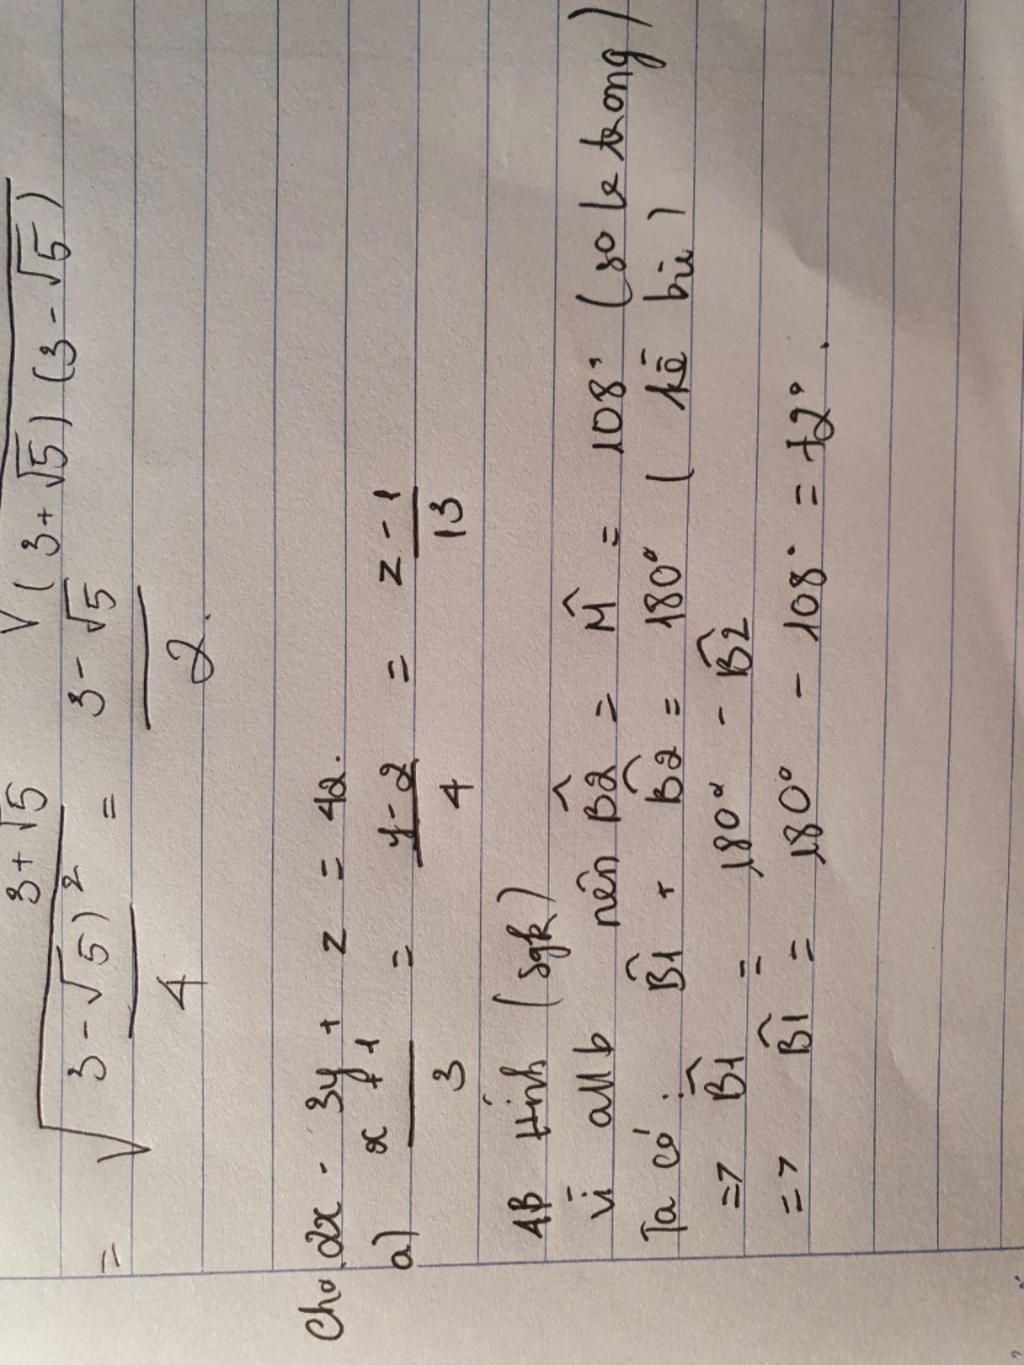 3+√5 √(3+√5)(3-√5)
= √((3-√5)²/4) = (3-√5)/2.
Cho 2x - 3y + z = 42.
a) (x+1)/3 = (y-2)/4 = (z-1)/13
4B Hình (sgk)
Vì a//b nên B̂2 = M̂ = 108° (so le trong)
Ta có: B̂1 + B̂2 = 180° (kề bù)
=> B̂1 = 180° - B̂2
=> B̂1 = 180° - 108° = 72°.